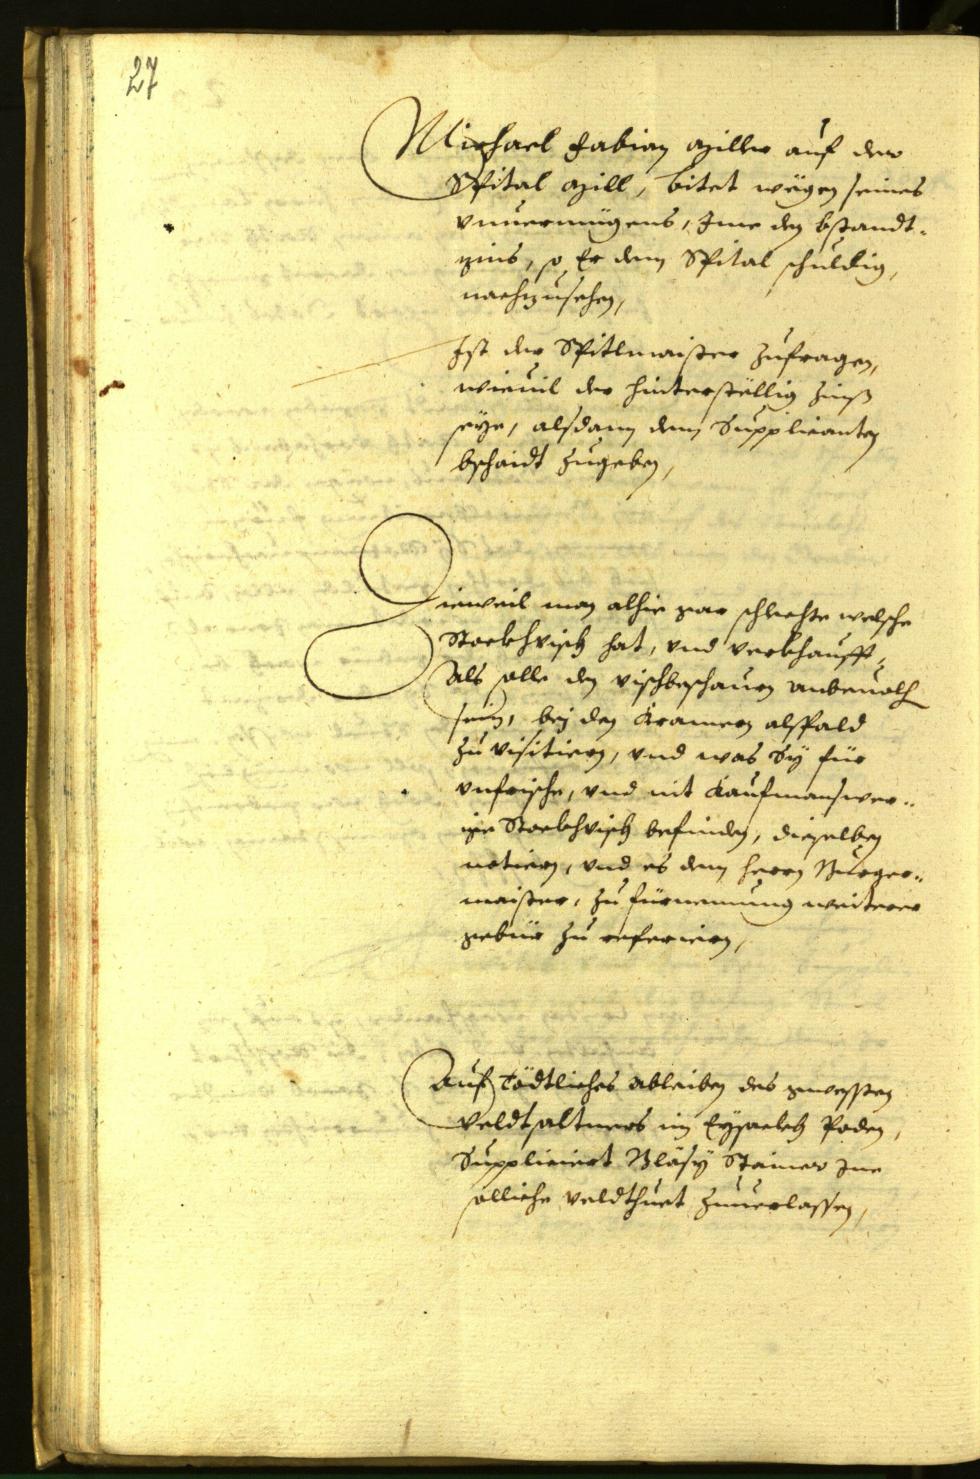 27
Michael Fabian Miller auf der
Spital Mill, bitet wegen seines
vnuermügens, Ime den bstandt-
zins, so Er dem Spital schuldig,
nachzusehen,
Ist der Spitlmaister zufragen,
wieuil der hinterstellig zinß
seye, alsdann dem Supplicanten
bschaidt zugeben,
Dieweil man alhie gar schlechte welsche
Stockhvisch hat, vnd verkhaufft,
Als solle den vischbschauern anbeuolh
sein, bej den Kramern alspald
zu visitiern, vnd was Sy für
vnfrische, vnd nit Kaufmanswer-
ige Stockhvisch befinden, dieselben
notiern, vnd es dem herrn Burger-
maister, zu fürnemung weiterer
gebür zu referiern,
Auf Tödtliches ableiben des gwessten
veldtsaltners im Eysackh Poden,
Suppliciert Bläsy Stainer Ime
solliche veldthuet zuuerlassen,